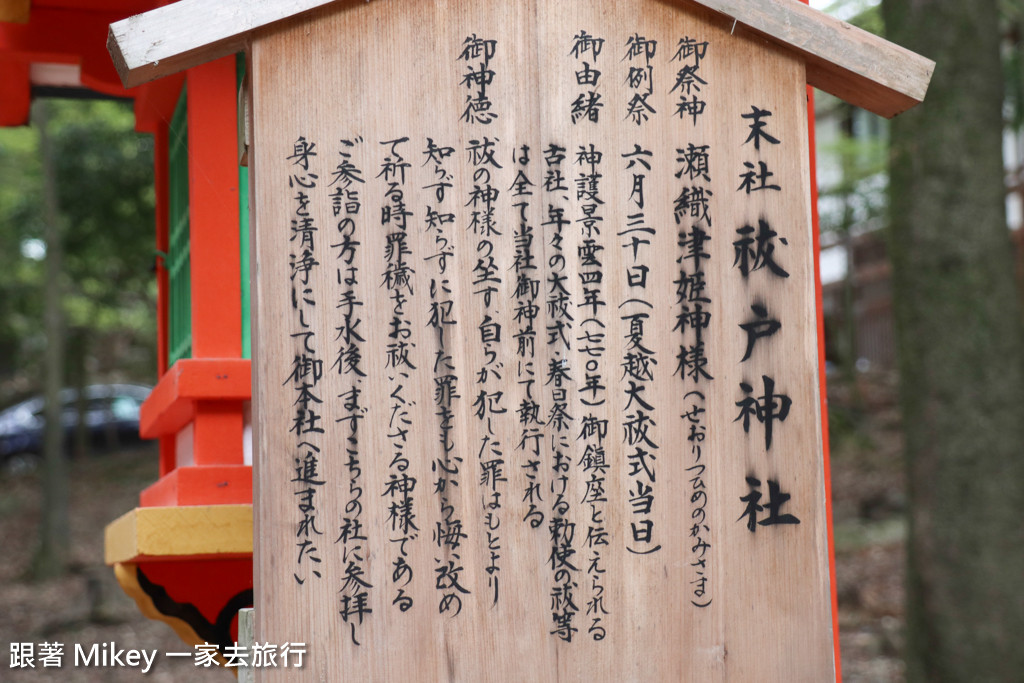 末社 祓戸神社
御祭神 瀬織津姫神様（せおりつひめのかみさま）
御例祭 六月三十日（夏越大祓式当日）
御由緒 神護景雲四年（七七〇年）御鎮座と伝えられる
古社、年々の大祓式、春日祭における勅使の祓等
は全て当社御神前にて執行される
御神徳 祓の神様の坐す、自らが犯した罪はもとより
知らず知らずに犯した罪をも心から悔い改め
て祈る時罪穢をお祓いくださる神様である
ご参詣の方は手水後、まずこちらの社に参拝し
身心を清浄にして御本社へ進まれたい
跟著 Mikey 一家去旅行